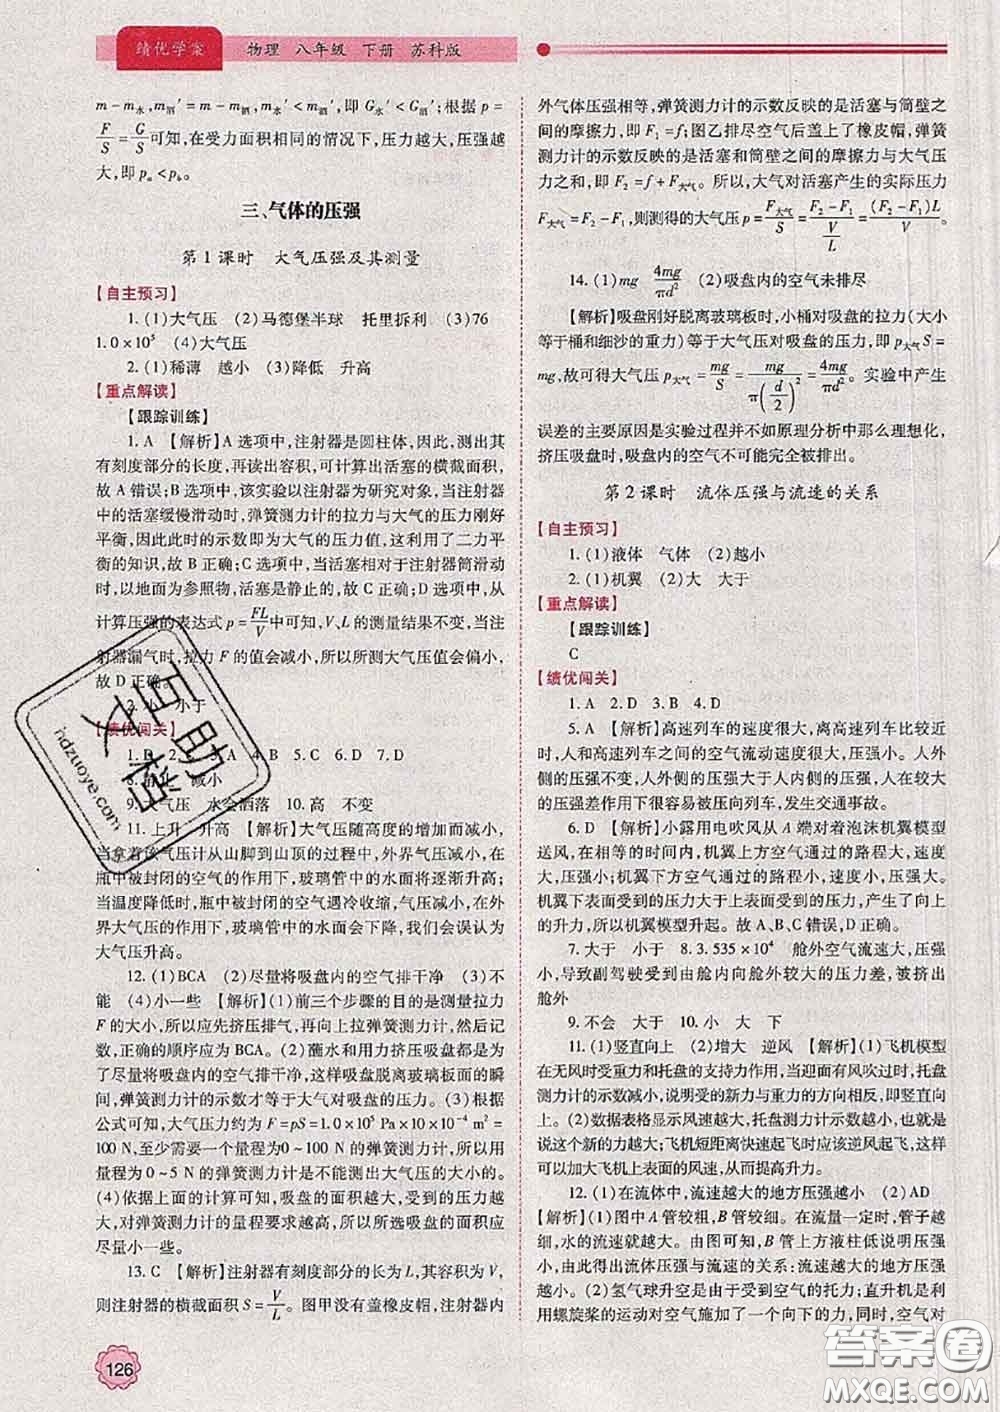 绩优学案 物理 八年级 下册 苏科版
m-m水,m酒′=m-m酒,m水′<m酒′,即 G水′<G酒′;根据 p=
F/S=G/S可知,在受力面积相同的情况下,压力越大,压强越
大,即 pa<pb。
三、气体的压强
第1课时 大气压强及其测量
【自主预习】
1.(1)大气压 (2)马德堡半球 托里拆利 (3)76
1.0×10⁵ (4)大气压
2.(1)稀薄 越小 (3)降低 升高
【重点解读】
【跟踪训练】
1.A 【解析】A选项中,注射器是圆柱体,因此,测出其
有刻度部分的长度,再读出容积,可计算出活塞的横截面积,
故A错误;B选项中,该实验以注射器为研究对象,当注射器
中的活塞缓慢滑动时,弹簧测力计的拉力与大气的压力刚好
平衡,因此此时的示数即为大气的压力值,这利用了二力平
衡的知识,故B正确;C选项中,当拉动注射器筒滑动
时,以地面为参照物,活塞是静止的,故C正确;D选项中,从
计算压强的表达式 p=FL/V中可知,V、L的测量结果不变,当注
射器漏气时,拉力F的值会减小,所以所测大气压值会偏小,
故D正确。
2.小 小于
【绩优闯关】
1.D 4.B 5.C 6.D 7.D
减小
9.大气压 水会洒落 10.高 不变
11.上升 升高 【解析】大气压随高度的增加而减小,
当拿着该气压计从山脚到山顶的过程中,外界气压减小,在
瓶中被封闭的空气的作用下,玻璃管中的水面将逐渐升高;
当气温降低时,瓶中被封闭的空气遇冷收缩,气压变小,在外
界大气压的作用下,玻璃管中的水面会下降,我们会误认为
大气压升高。
12.(1)BCA (2)尽量将吸盘内的空气排干净 (3)不
能 (4)小一些 【解析】(1)前三个步骤的目的是测量拉力
F的大小,所以应先挤压排气,再向上拉弹簧测力计,然后记
数,正确的顺序应为BCA。(2)蘸水和用力挤压吸盘都是为
了尽量将吸盘内的空气排干净,当吸盘脱离玻璃板面的瞬
间,弹簧测力计的示数才等于大气对吸盘的压力。(3)根据
公式可知,大气压力约为F=pS=1.0×10⁵ Pa×10×10⁻⁴ m²=
100 N,至少需要一个量程为0~100 N的弹簧测力计,所以用
量程为0~5 N的弹簧测力计是不能测出大气压的大小的。
(4)依据上面的计算可知,吸盘的面积越大,受到的压力越
大,对弹簧测力计的量程要求越高,所以所选吸盘的面积应
尽量小一些。
13.C 【解析】注射器有刻度部分的长为L,其容积为V,
则注射器的横截面积S=V/L。图甲没有盖橡皮帽,注射器内
126
外气体压强相等,弹簧测力计的示数反映的是活塞与筒壁之
间的摩擦力,即F1=f;图乙排尽空气后盖上了橡皮帽,弹簧
测力计的示数反映的是活塞和筒壁之间的摩擦力与大气压
力之和,即F2=f+F大气。所以,大气对活塞产生的实际压力
F大气=F2-F1,则测得的大气压p=F大气/S=(F2-F1)/(V/L)=(F2-F1)L/V。
14.(1)mg 4mg/πd² (2)吸盘内的空气未排尽
【解析】吸盘刚好脱离玻璃板时,小桶对吸盘的拉力(大小
等于桶和细沙的重力)等于大气压对吸盘的压力,即p大气S=
mg,故可得大气压p大气=mg/S=mg/π(d/2)²=4mg/πd²。实验中产生
误差的主要原因是实验过程并不如原理分析中那么理想化,
挤压吸盘时,吸盘内的空气不可能完全被排出。
第2课时 流体压强与流速的关系
【自主预习】
1.(1)液体 气体 (2)越小
2.(1)机翼 (2)大 大于
【重点解读】
【跟踪训练】
C
【绩优闯关】
1.A 2.D 3.B 4.D
5.A 【解析】高速列车的速度很大,离高速列车比较近
时,人和高速列车之间的空气流动速度很大,压强小。人外
侧的压强不变,人外侧的压强大于人内侧的压强,人在较大
的压强差作用下很容易被压向列车,发生交通事故。
6.D 【解析】小露用电吹风从A端对着泡沫机翼模型
送风,在相等的时间内,机翼上方空气通过的路程大,速度
大,压强小;机翼下方空气通过的路程小,速度小,压强大。
机翼下表面受到的压力大于上表面受到的压力,产生了向上
的升力,所以机翼模型升起。故A、B、C错误,D正确。
7.大于 小于 8.3.535×10⁴ 舱外空气流速大,压强
小,导致副驾驶受到由舱内向舱外较大的压力差,被挤出
舱外
9.不会 大于 10.小 大 下
11.(1)竖直向上 (2)增大 逆风 【解析】(1)飞机模型
在无风时受重力和托盘的支持力作用,当迎面有风吹过时,托盘
测力计的示数减小,说明受的新力与重力的方向相反,即竖直向
上。(2)数据表格显示风速越大,托盘测力计示数越小,也就是
说这个新的力越大;飞机短距离快速起飞时应该逆风起飞,这样
可以加大飞机上表面的风速,从而提高升力。
12.(1)在流体中,流速越大的地方压强越小 (2)AD
【解析】(1)图中A管较粗,B管较细。在流量一定时,管子越
细,水的流速越大。由图可知,B管上方液柱低说明压强小,
由此得出流体压强与流速的关系:流体流速越大的地方压强
越小。(2)氢气球升空是由于空气的浮力;直升机是利
用螺旋桨的运动对空气施加了一个向下的力,同时,空气对
互助文档
hdzuoye.com
答案圈
MXQE.COM